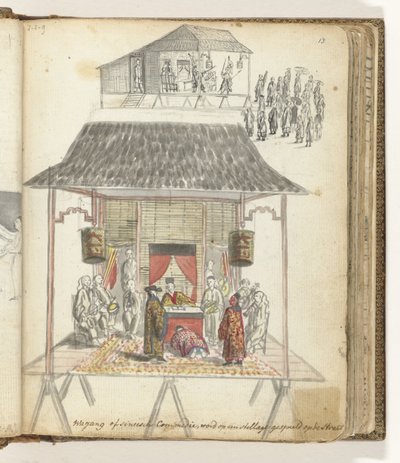 13
Wayang of sineesch Commedie, word op een stellage gespeeld op de Straat